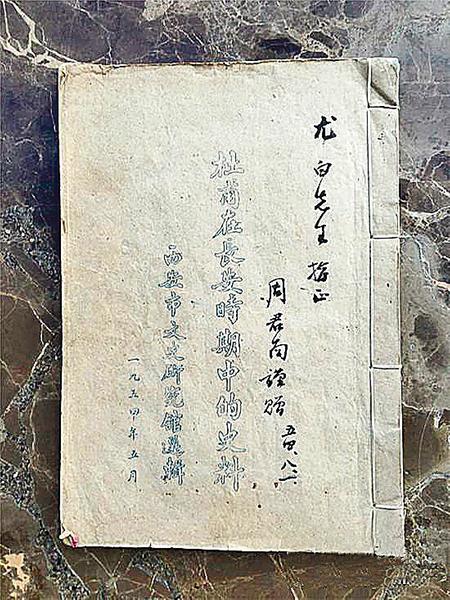 尤白先生指正
周君南謹贈
杜甫在長安時期中的史料
西安市文史研究館選輯
一九五四年五月